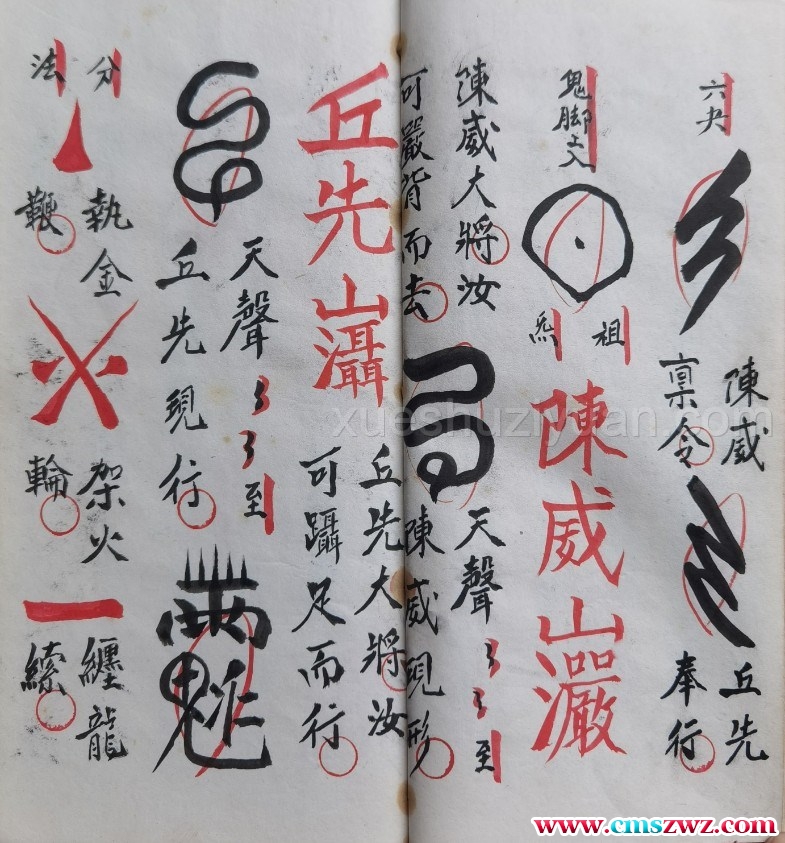 六夬
陳威
稟令
丘先
奉行
鬼脚
祖
炁
陳威山𤅙
陳威大將汝
可嚴背而去
天聲
至
陳威現形
丘先山灄
丘先大將汝
可躡足而行
天聲
至
丘先現行
分
法
執金
鞭
架火
輪
纏龍
繚
xueshuziyuan.com
www.cmszwz.com